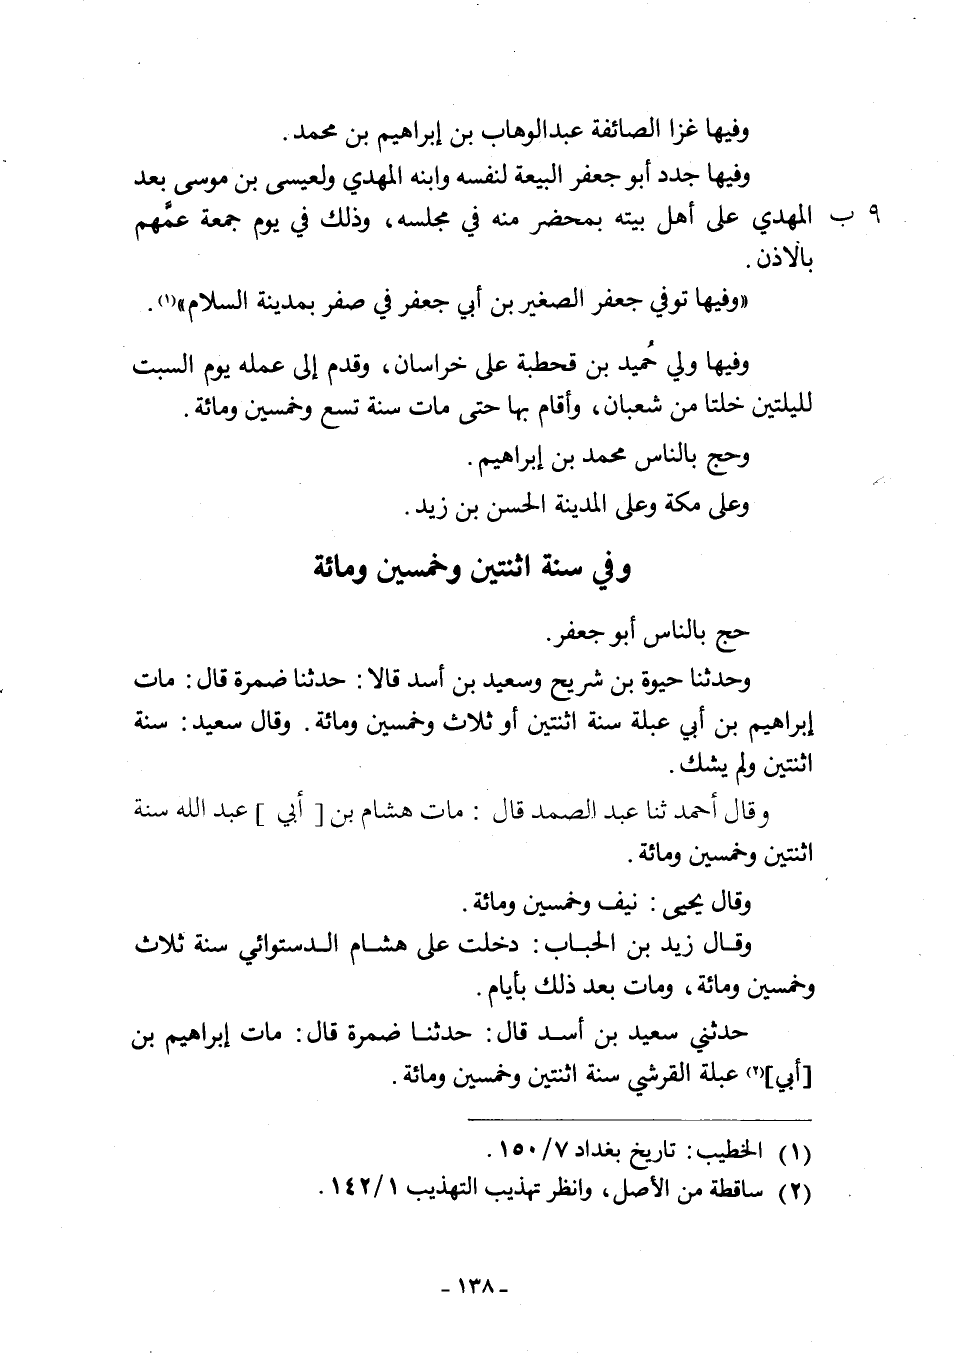 وفيها غزا الصائفة عبدالوهاب بن إبراهيم بن محمد .
وفيها جدد أبو جعفر البيعة لنفسه وابنه المهدي ولعيسى بن موسى بعد
٩ ب المهدي على أهل بيته بمحضر منه في مجلسه، وذلك في يوم جمعة عمَّهم
بالاذن .
«وفيها توفي جعفر الصغير بن أبي جعفر في صفر بمدينة السلام»(١) .
وفيها ولي حُميد بن قحطبة على خراسان، وقدم إلى عمله يوم السبت
لليلتين خلتا من شعبان، وأقام بها حتى مات سنة تسع وخمسين ومائة .
وحج بالناس محمد بن إبراهيم .
وعلى مكة وعلى المدينة الحسن بن زيد .
وفي سنة اثنتين وخمسين ومائة
حج بالناس أبو جعفر.
وحدثنا حيوة بن شريح وسعيد بن أسد قالا : حدثنا ضمرة قال : مات
إبراهيم بن أبي عبلة سنة اثنتين أو ثلاث وخمسين ومائة . وقال سعيد : سنة
اثنتين ولم يشك .
وقال أحمد ثنا عبد الصمد قال : مات هشام بن [ أبي ] عبد الله سنة
اثنتين وخمسين ومائة .
وقال يحيى : نيف وخمسين ومائة .
وقال زيد بن الحباب : دخلت على هشام الدستوائي سنة ثلاث
وخمسين ومائة، ومات بعد ذلك بأيام .
حدثني سعيد بن أسد قال : حدثنا ضمرة قال : مات إبراهيم بن
[أبي](٢) عبلة القرشي سنة اثنتين وخمسين ومائة .
(١) الخطيب : تاريخ بغداد ٧/ ١٥٠ .
(٢) ساقطة من الأصل، وانظر تهذيب التهذيب ١/ ١٤٢ .
- ١٣٨ -